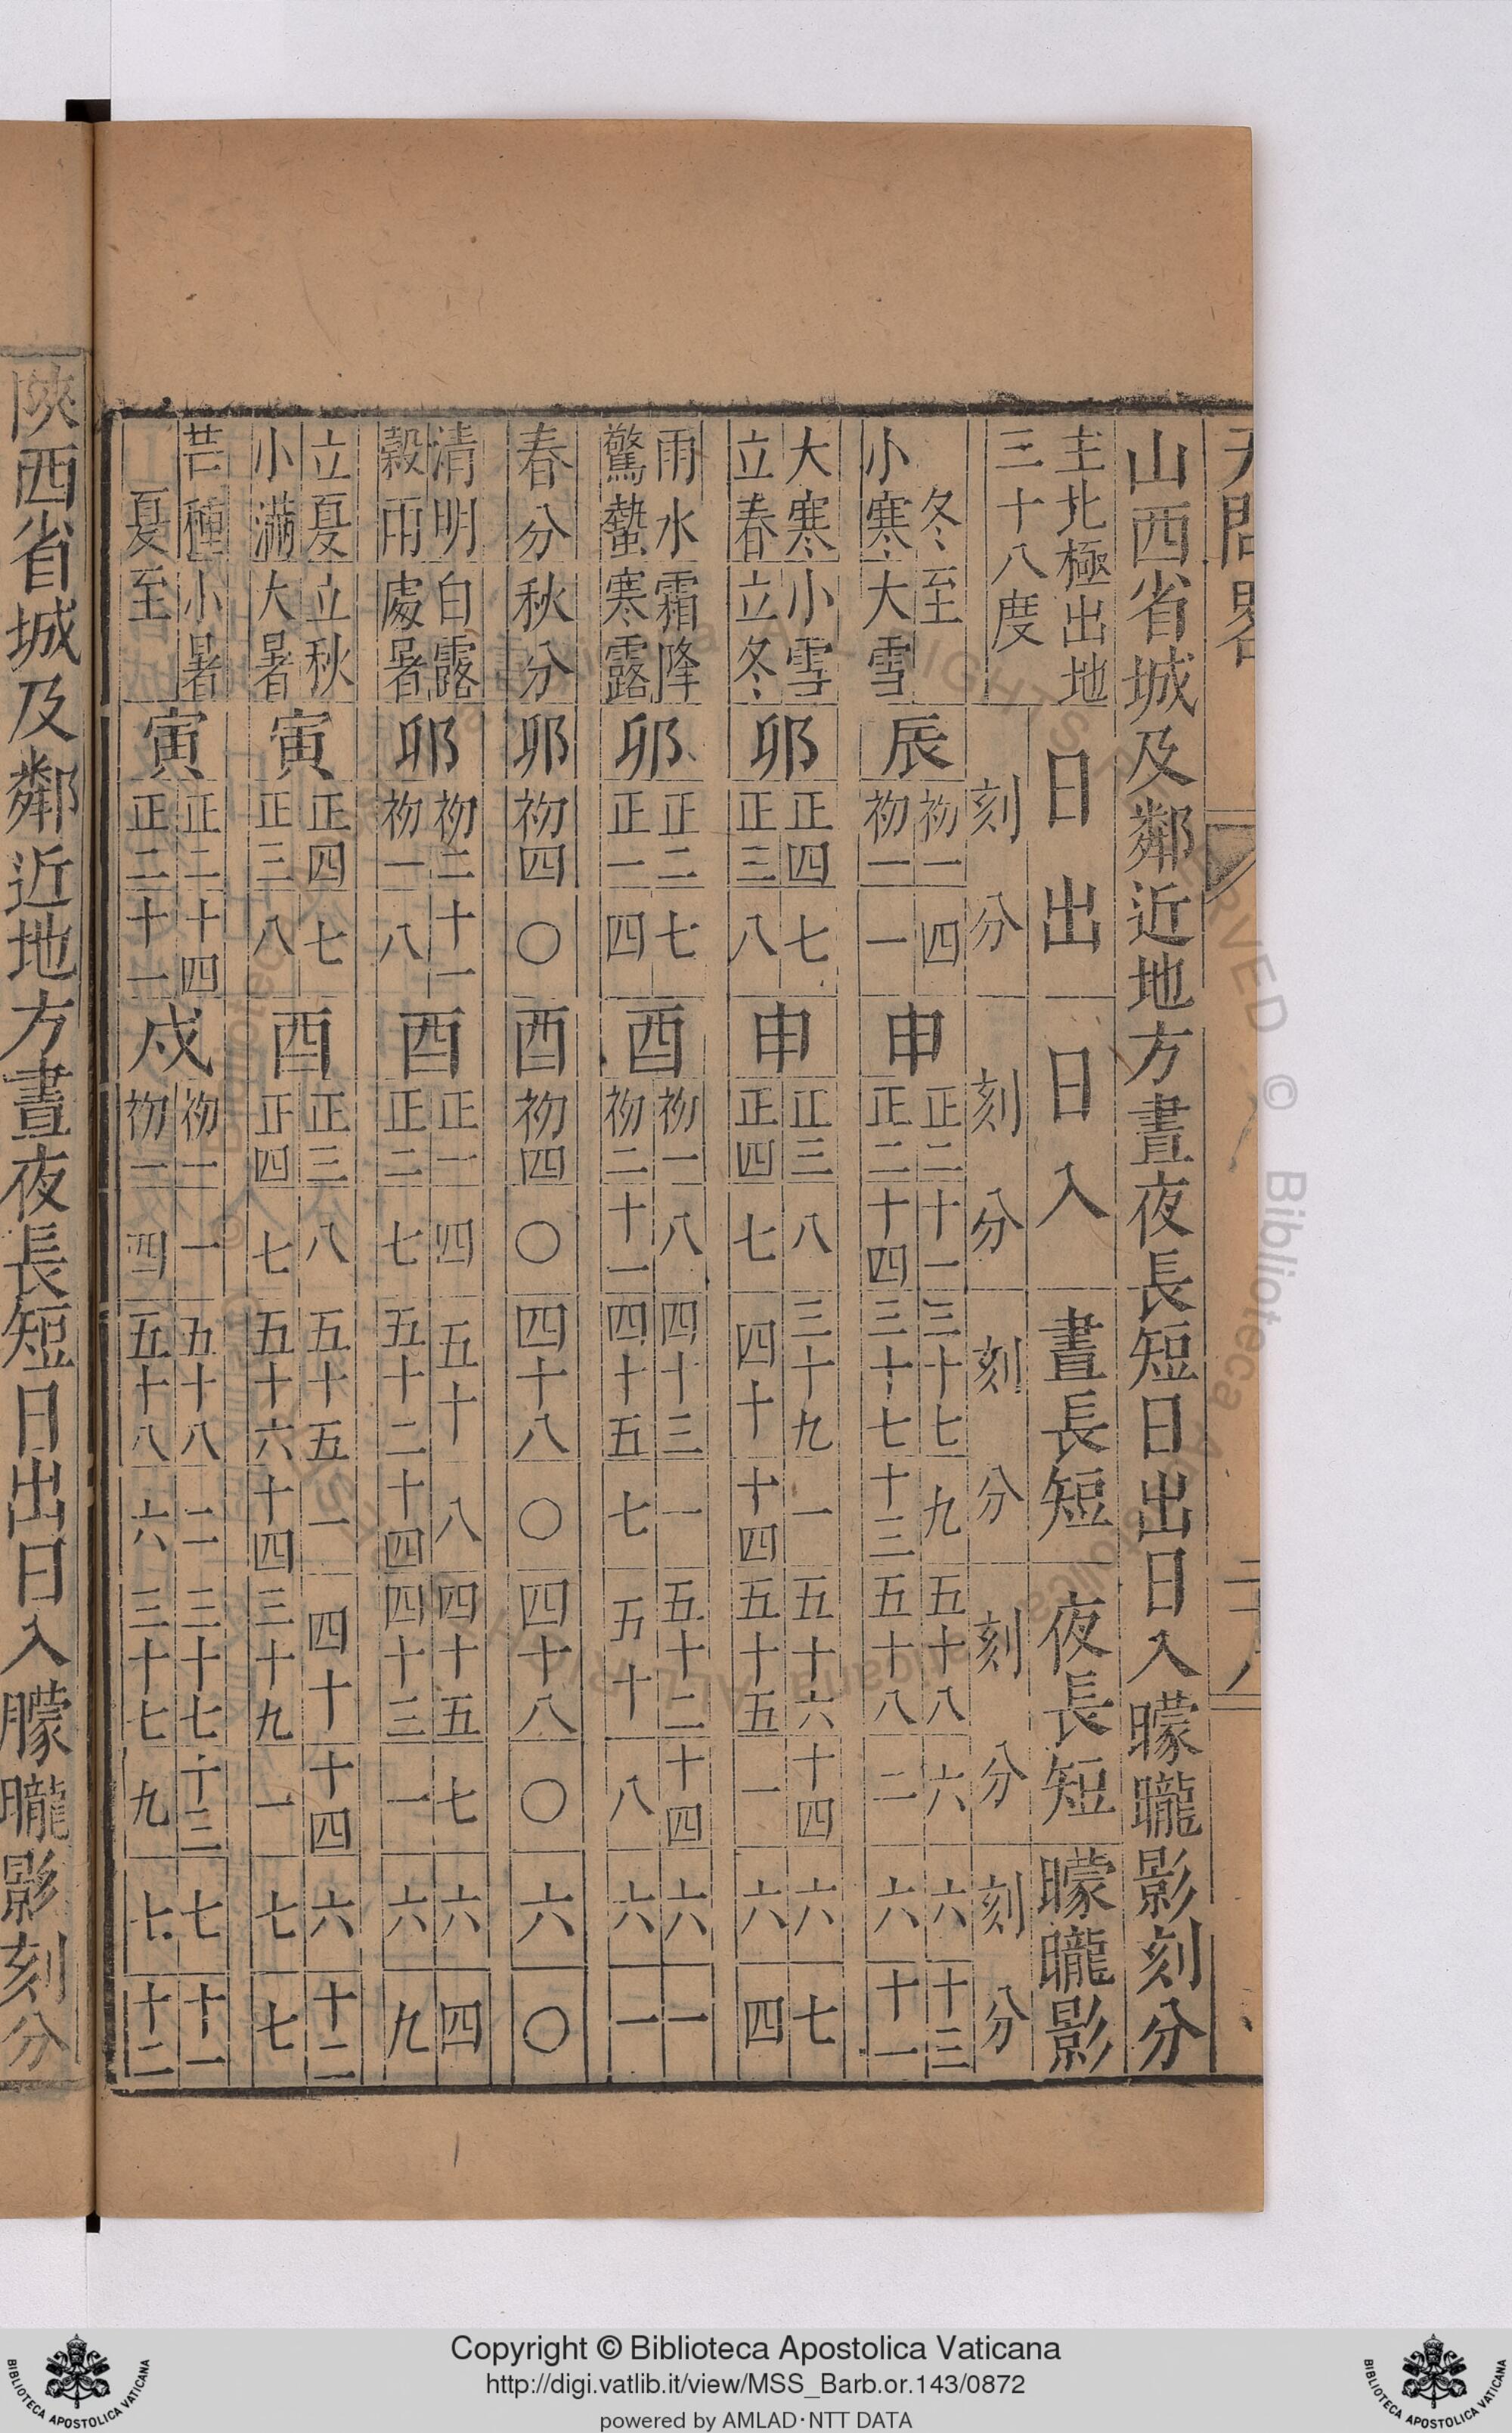 天問畧
山西省城及鄰近地方晝夜長短日出日入矇矓影刻分
主北極出地
三十八度
日出 日入 晝長短 夜長短 矇矓影
刻 分 刻 分 刻 分 刻 分 刻 分
冬至 辰 初一 四 申 正二 十一 三十七 九 五十八 六 六 十三
小寒 大雪 初一 一 正二 十四 三十七 十三 五十八 二 六 十一
大寒 小雪 卯 正四 七 申 正三 八 三十九 一 五十六 十四 六 七
立春 立冬 正三 八 正四 七 四十 十四 五十五 一 六 四
雨水 霜降 卯 正二 七 酉 初一 八 四十三 一 五十二 十四 六 一
驚蟄 寒露 正一 四 初二 十一 四十五 七 五十 八 六 一
春分 秋分 卯 初四 〇 酉 初四 〇 四十八 〇 四十八 〇 六 〇
清明 白露 卯 初二 十一 酉 正一 四 五十 八 四十五 七 六 四
穀雨 處暑 初一 八 正二 七 五十二 十四 四十三 一 六 九
立夏 立秋 寅 正四 七 酉 正三 八 五十五 一 四十 十四 六 十二
小滿 大暑 正三 八 正四 七 五十六 十四 三十九 一 七 七
芒種 小暑 寅 正二 十四 戍 初一 一 五十八 二 三十七 十三 七 十一
夏至 正二 十一 初一 四 五十八 六 三十七 九 七 十二
陝西省城及鄰近地方晝夜長短日出日入朦矓影刻分
Copyright © Biblioteca Apostolica Vaticana
http://digi.vatlib.it/view/MSS_Barb.or.143/0872
powered by AMLAD·NTT DATA
BIBLIOTECA APOSTOLICA VATICANA
BIBLIOTECA APOSTOLICA VATICANA